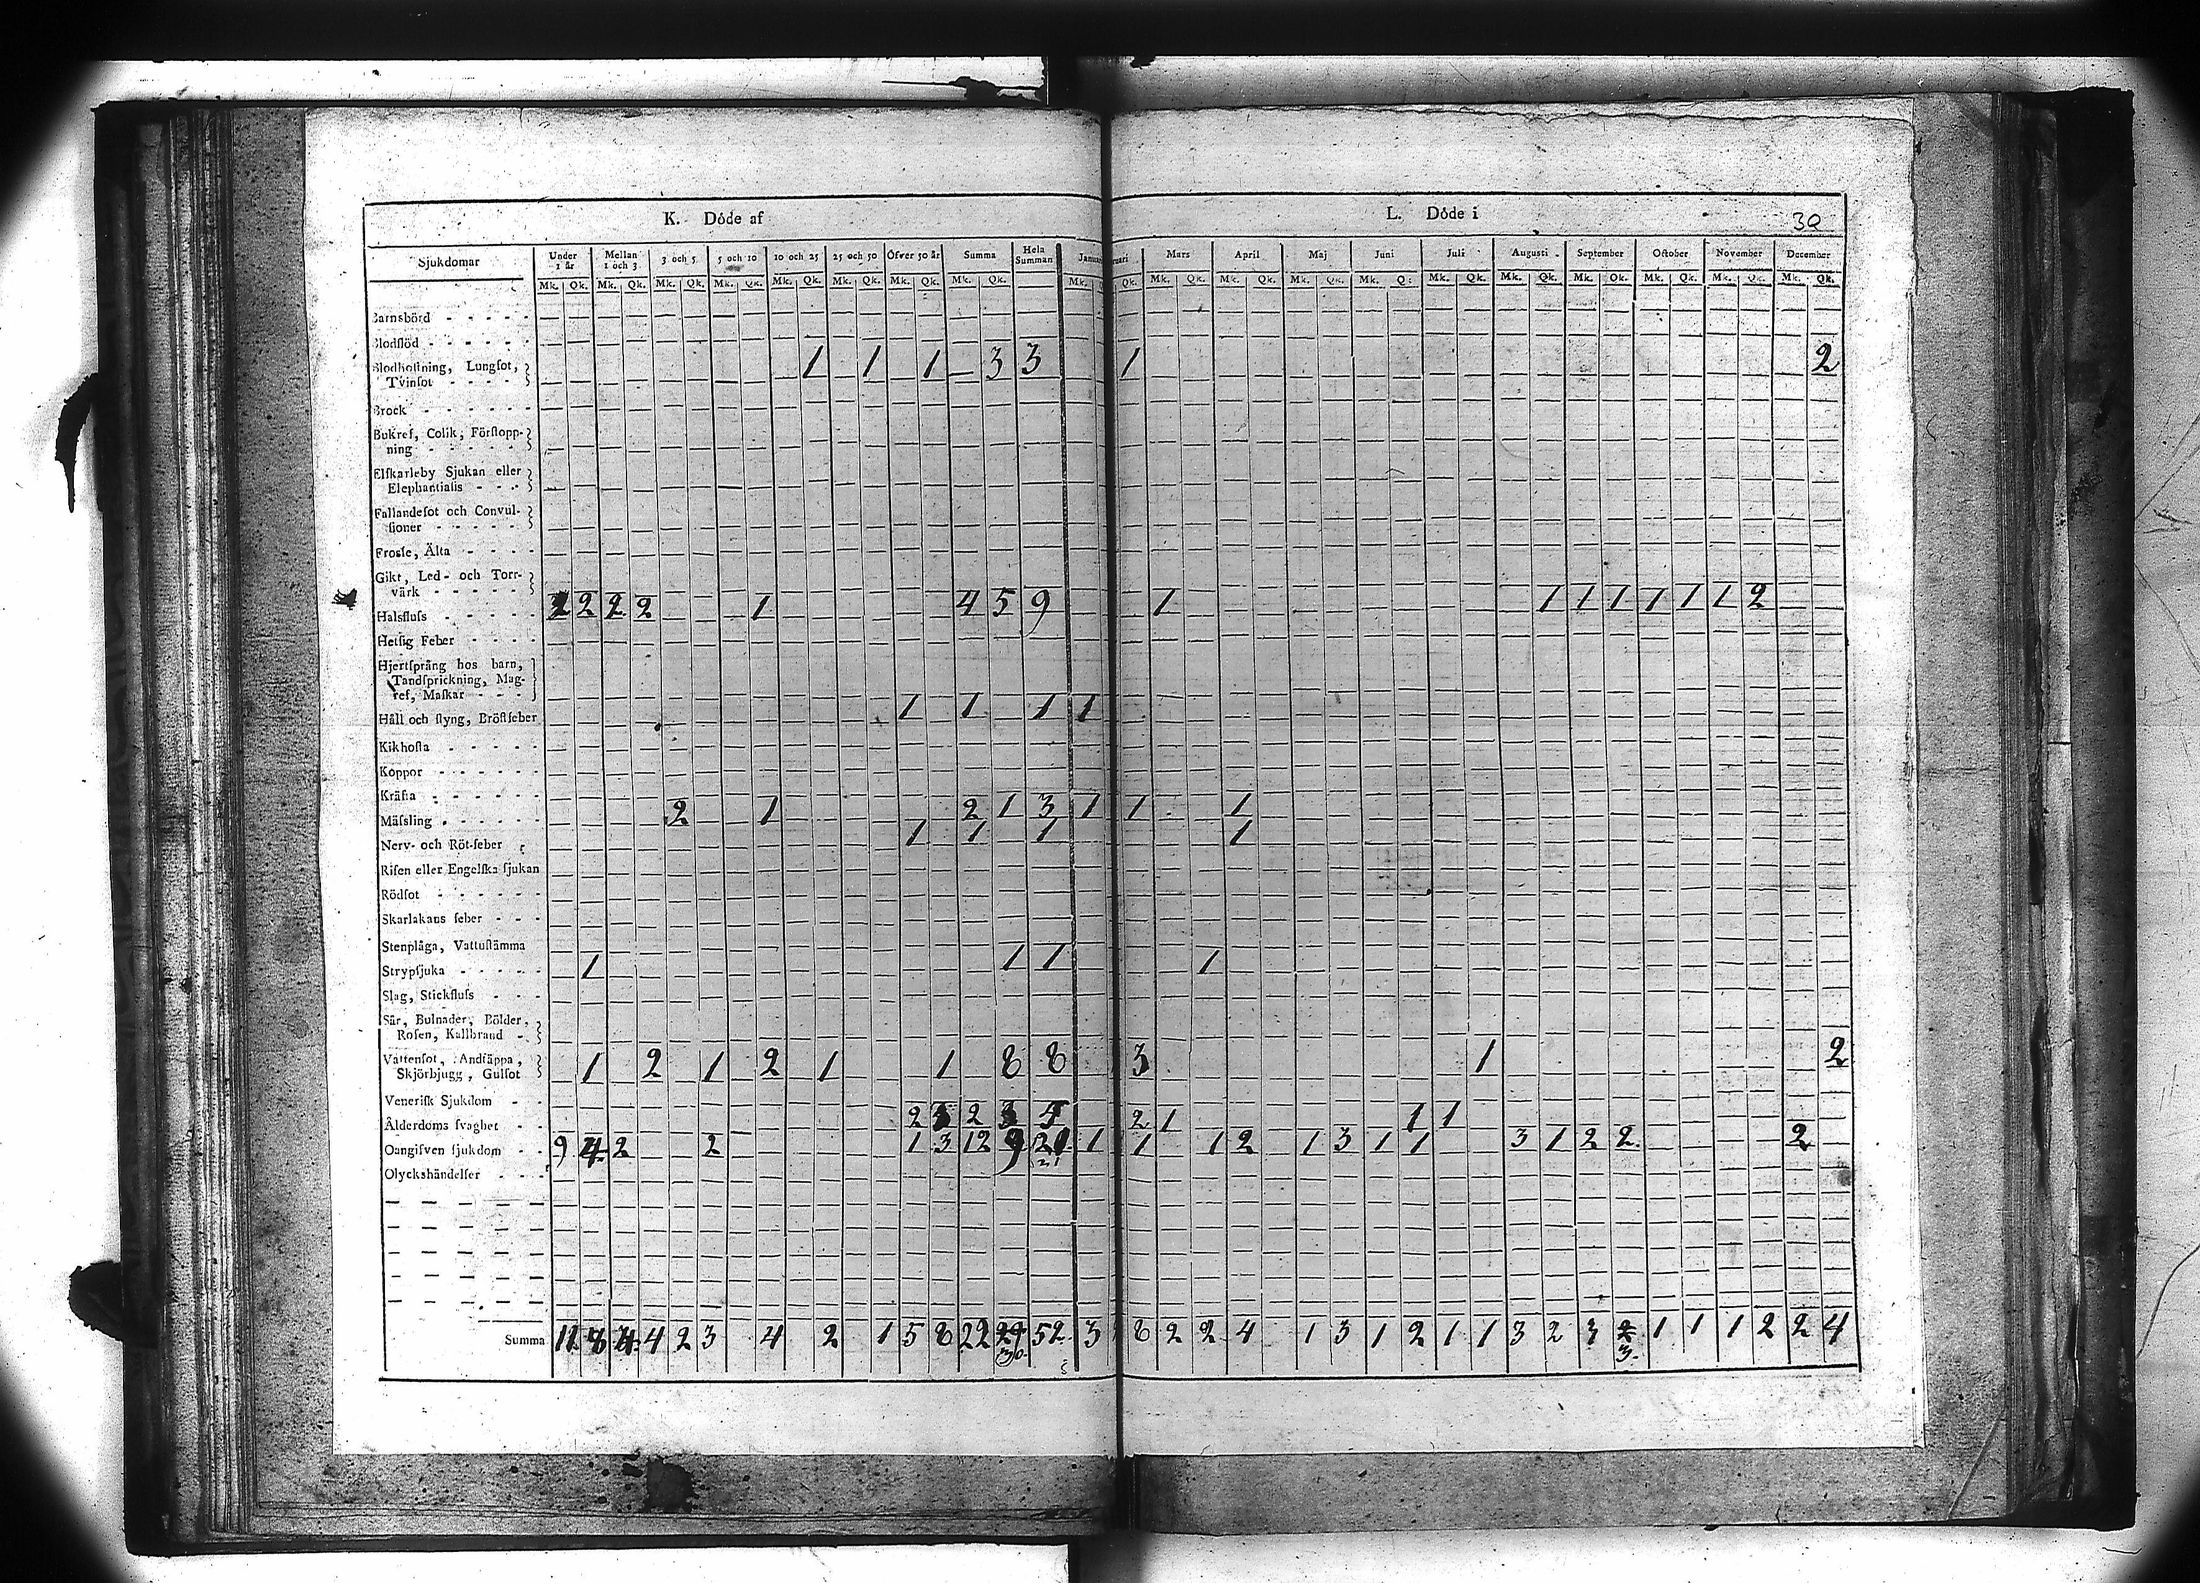 K. Döde af
L. Döde i
30
Sjukdomar Under 1 år Mellan 1 och 3 3 och 5 5 och 10 10 och 25 25 och 50 Öfver 50 år Summa Hela Summan Mars April Maj Juni Juli Augusti September October November December
Mk. Qk. Mk. Qk. Mk. Qk. Mk. Qk. Mk. Qk. Mk. Qk. Mk. Qk. Mk. Qk. Mk. Qk. Mk. Qk. Mk. Qk. Mk. Qk. Mk. Qk. Mk. Qk. Mk. Qk. Mk. Qk. Mk. Qk. Mk. Qk. Mk. Qk. Mk. Qk.
Barnsbörd
Blodflöd
Blodhostning, Lungsot, 1 1 1 3 3 1 2
Tvinsot
Brock
Bukref, Colik, Förstopp-
ning
Elfkarleby Sjukan eller
Elephantiasis
Fallandesot och Convul-
sioner
Frossa, Älta
Gikt, Led- och Torr-
värk
Halsfluss 2 2 2 2 1 4 5 9 1 1 1 1 1 1 1 2
Hetsig Feber
Hjertsprång hos barn,
Tandsprickning, Mag-
ref, Maskar
Håll och styng, Bröstfeber 1 1 1 1
Kikhosta
Koppor
Kräfta
Mässling 2 1 2 1 3 1 1 1
Nerv- och Röt-feber 1 1 1 1
Risen eller Engelska sjukan
Rödsot
Skarlakans feber
Stenplåga, Vattustämma
Strypsjuka 1 1 1 1
Slag, Stickfluss
Sår, Bulnader, Bölder,
Rosen, Kallbrand
Vattensot, Andtäppa, 1 2 1 2 1 1 8 8 3 1 2
Skjörbjugg, Gulsot
Venerisk Sjukdom
Ålderdoms svaghet 2 3 2 3 5 2 1 1 1
Oangifven sjukdom 9 4 2 2 1 3 12 9 21 1 1 1 2 1 3 1 1 3 1 2 2 2
Olyckshändelser
Summa 11 8 4 4 2 3 4 2 1 5 8 22 30 52 3 8 2 2 4 1 3 1 2 1 1 3 2 3 3 1 1 1 2 2 4